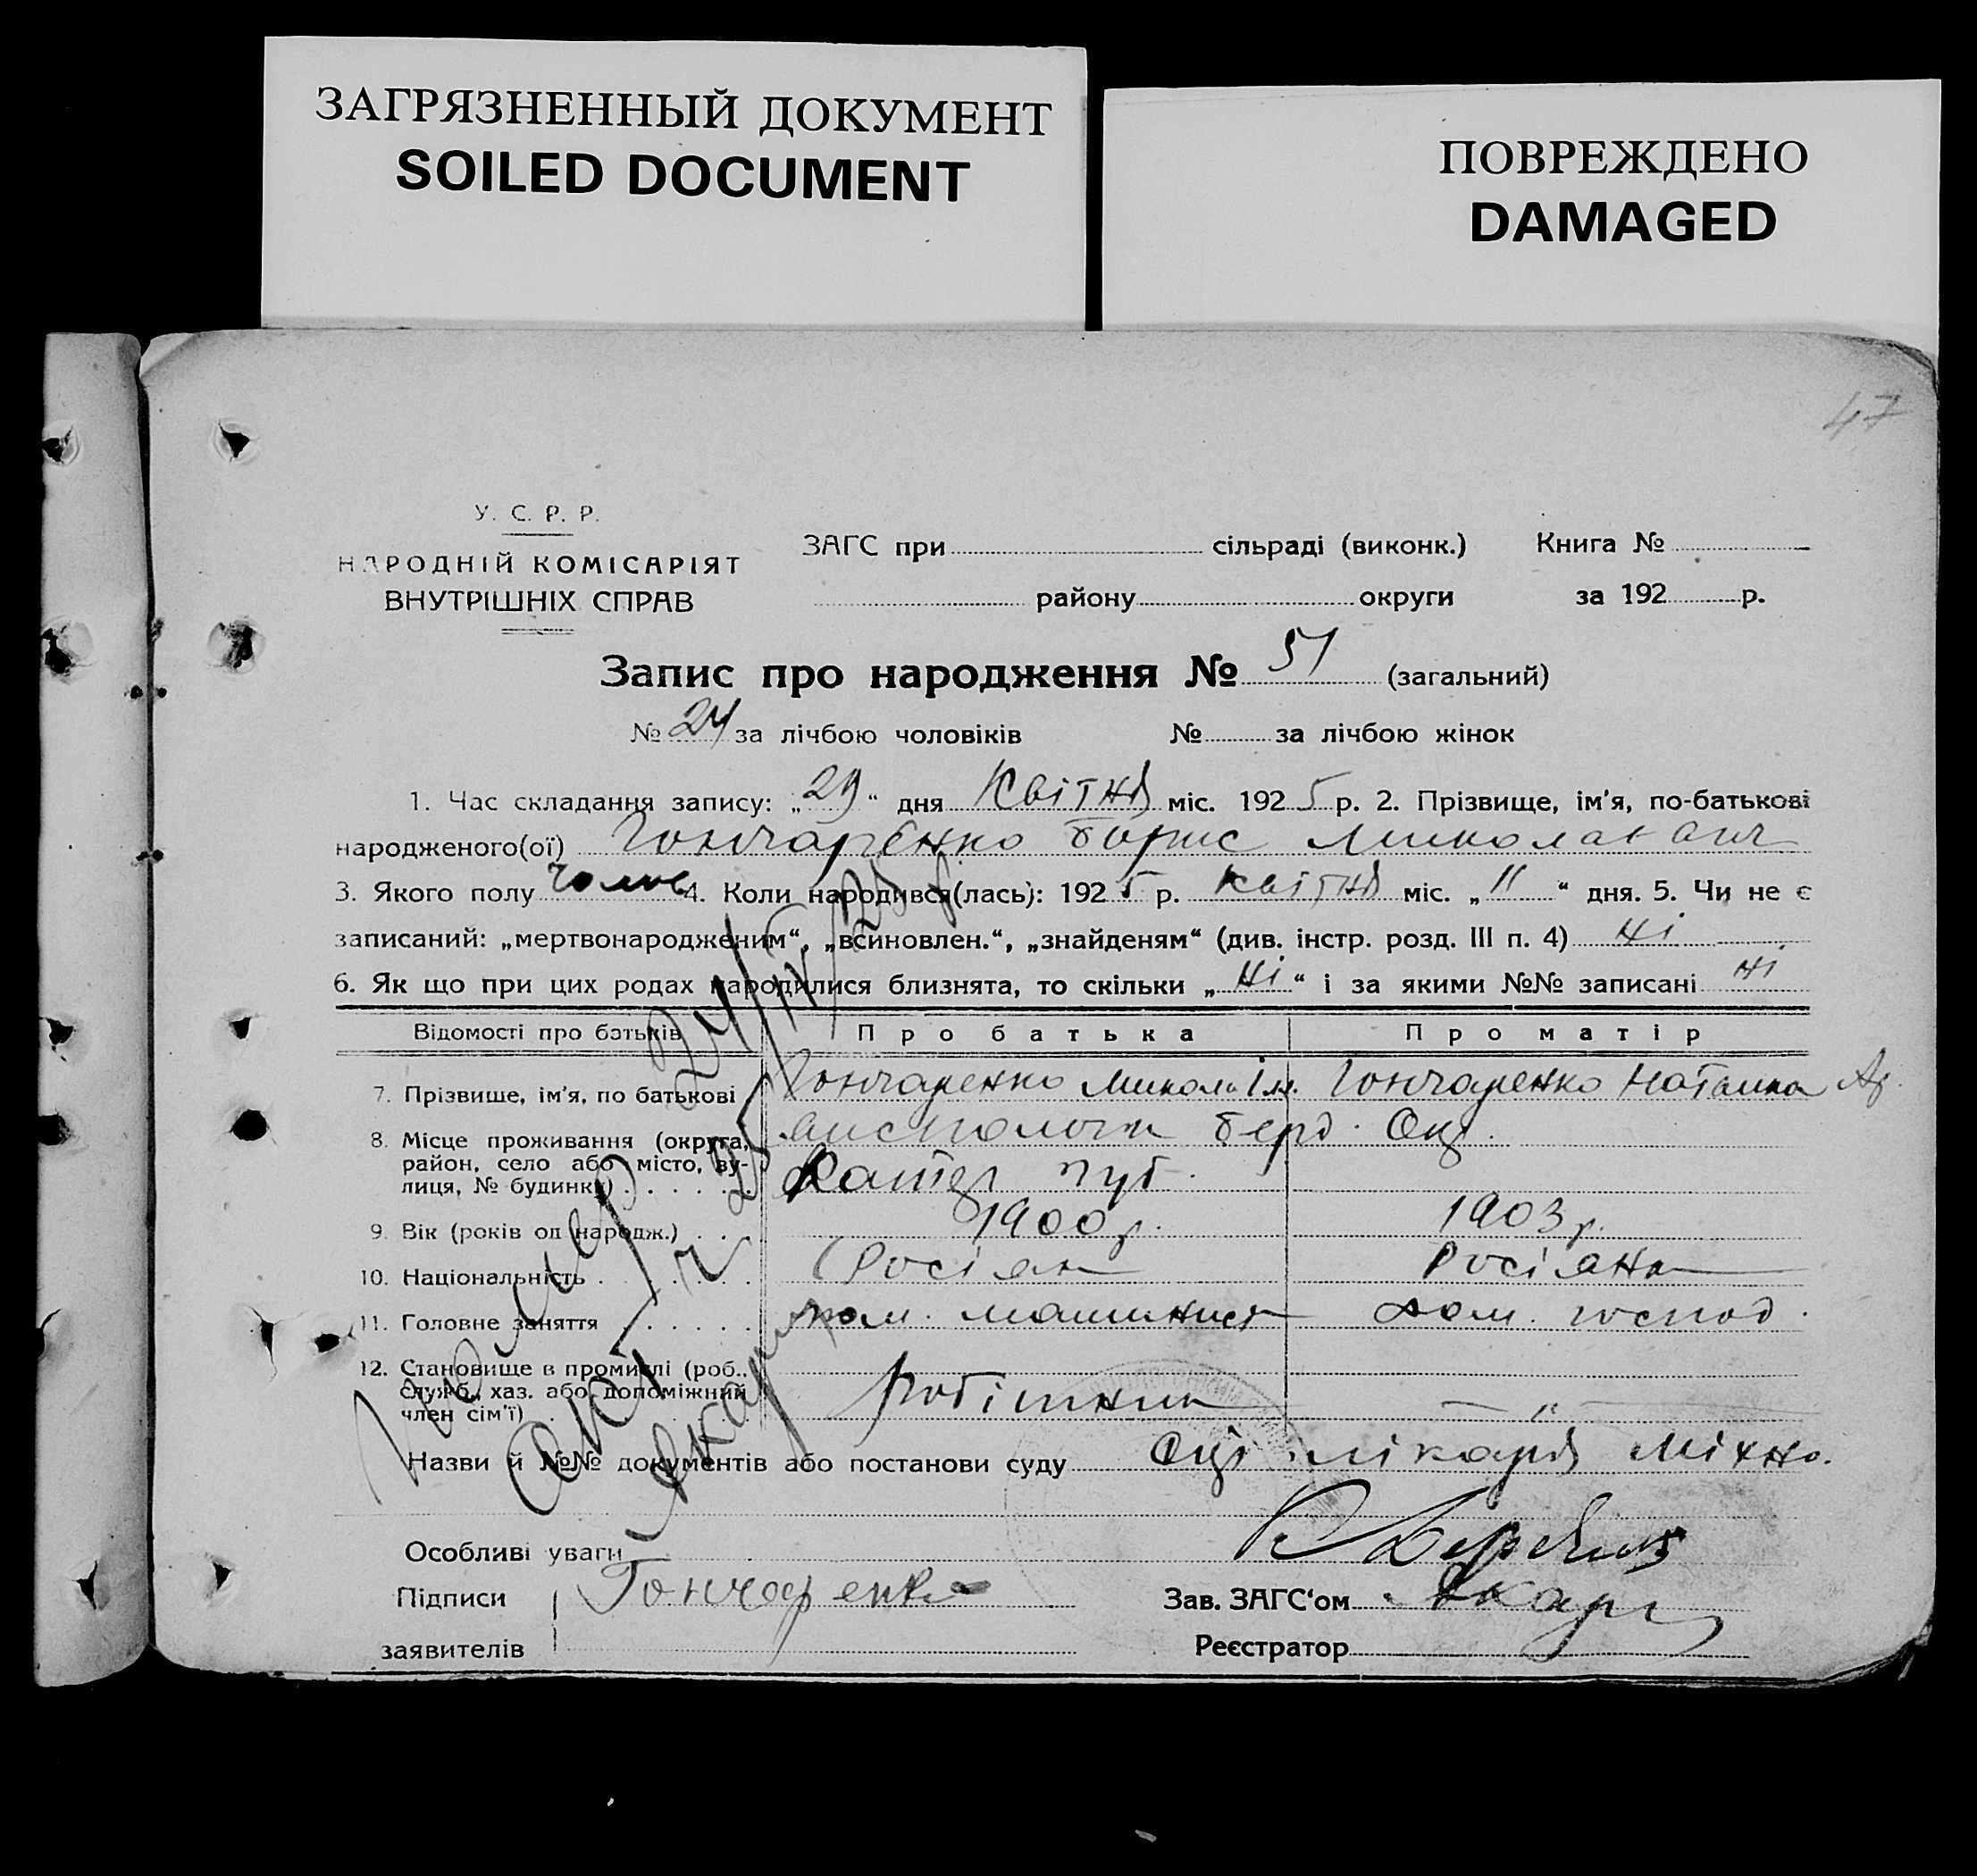 ЗАГРЯЗНЕННЫЙ ДОКУМЕНТ
SOILED DOCUMENT
ПОВРЕЖДЕНО
DAMAGED
47
У. С. Р. Р.
НАРОДНІЙ КОМІСАРІЯТ
ВНУТРІШНІХ СПРАВ
ЗАГС при сільраді (виконк.) Книга №
району округи за 192 р.
Запис про народження № 51 (загальний)
№ 24 за лічбою чоловіків № за лічбою жінок
1. Час складання запису: „29“ дня Квітня міс. 192 5 р. 2. Прізвище, ім'я, по-батькові
народженого(ої) Гончаренко Борис Миколаевич
3. Якого полу 4. Коли народився(лась): 192 5 р. Квітня міс. „11“ дня. 5. Чи не є
записаний: „мертвонародженим“, „всиновлен.“, „знайденям“ (див. інстр. розд. III п. 4) ні
6. Як що при цих родах народилися близнята, то скільки „ні“ і за якими №№ записані ні
Відомості про батьків Про батька Про матір
7. Прізвише, ім'я, по батькові Гончаренко Микола Гончаренко Наталка
8. Місце проживання (округа,
район, село або місто, ву-
лиця, № будинку)
9. Вік (років од народж.) 1900 р. 1903 р.
10. Національність Росіян Росіянка
11. Головне заняття пом. машинист дом. господ.
12. Становище в промислі (роб.,
служб., хаз. або допоміжний
член сім'ї) Робітник — „ —
Назви й №№ документів або постанови суду лікаря Міхно.
Особливі уваги
Підписи Гончаренко Зав. ЗАГС'ом
заявителів Реєстратор